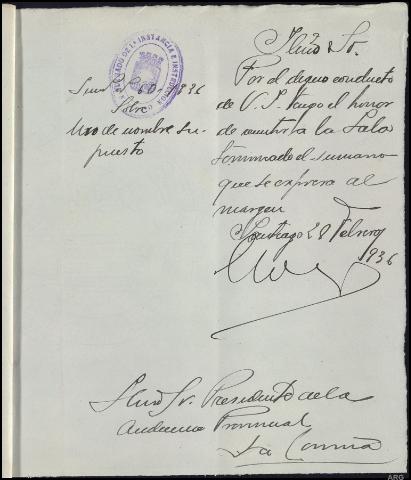 JUZGADO DE 1ª INSTANCIA E INSTRUCCION
Sum° 6 De 1936
Sobre
Uso de nombre su-
puesto
Ilmo Sr.
Por el digno conducto
de V. S. tengo el honor
de remitir a la Sala
terminado el sumario
que se expresa al
margen
Santiago 28 Febrero
1936
Ilmo Sr. Presidente de la
Audiencia Provincial
La Coruña
ARG